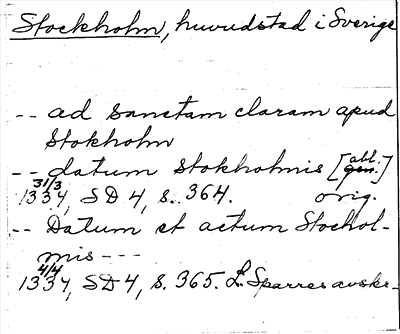 Stockholm, huvudstad i Sverige
-- ad Sanctam claram apud
Stokholm
-- datum Stokholmis [abl. gen.]
31/3 1334, SD 4, s. 364. orig.
-- Datum et actum Stochol-
mis ---
4/4 1334, SD 4, s. 365. L. Sparres avskr.